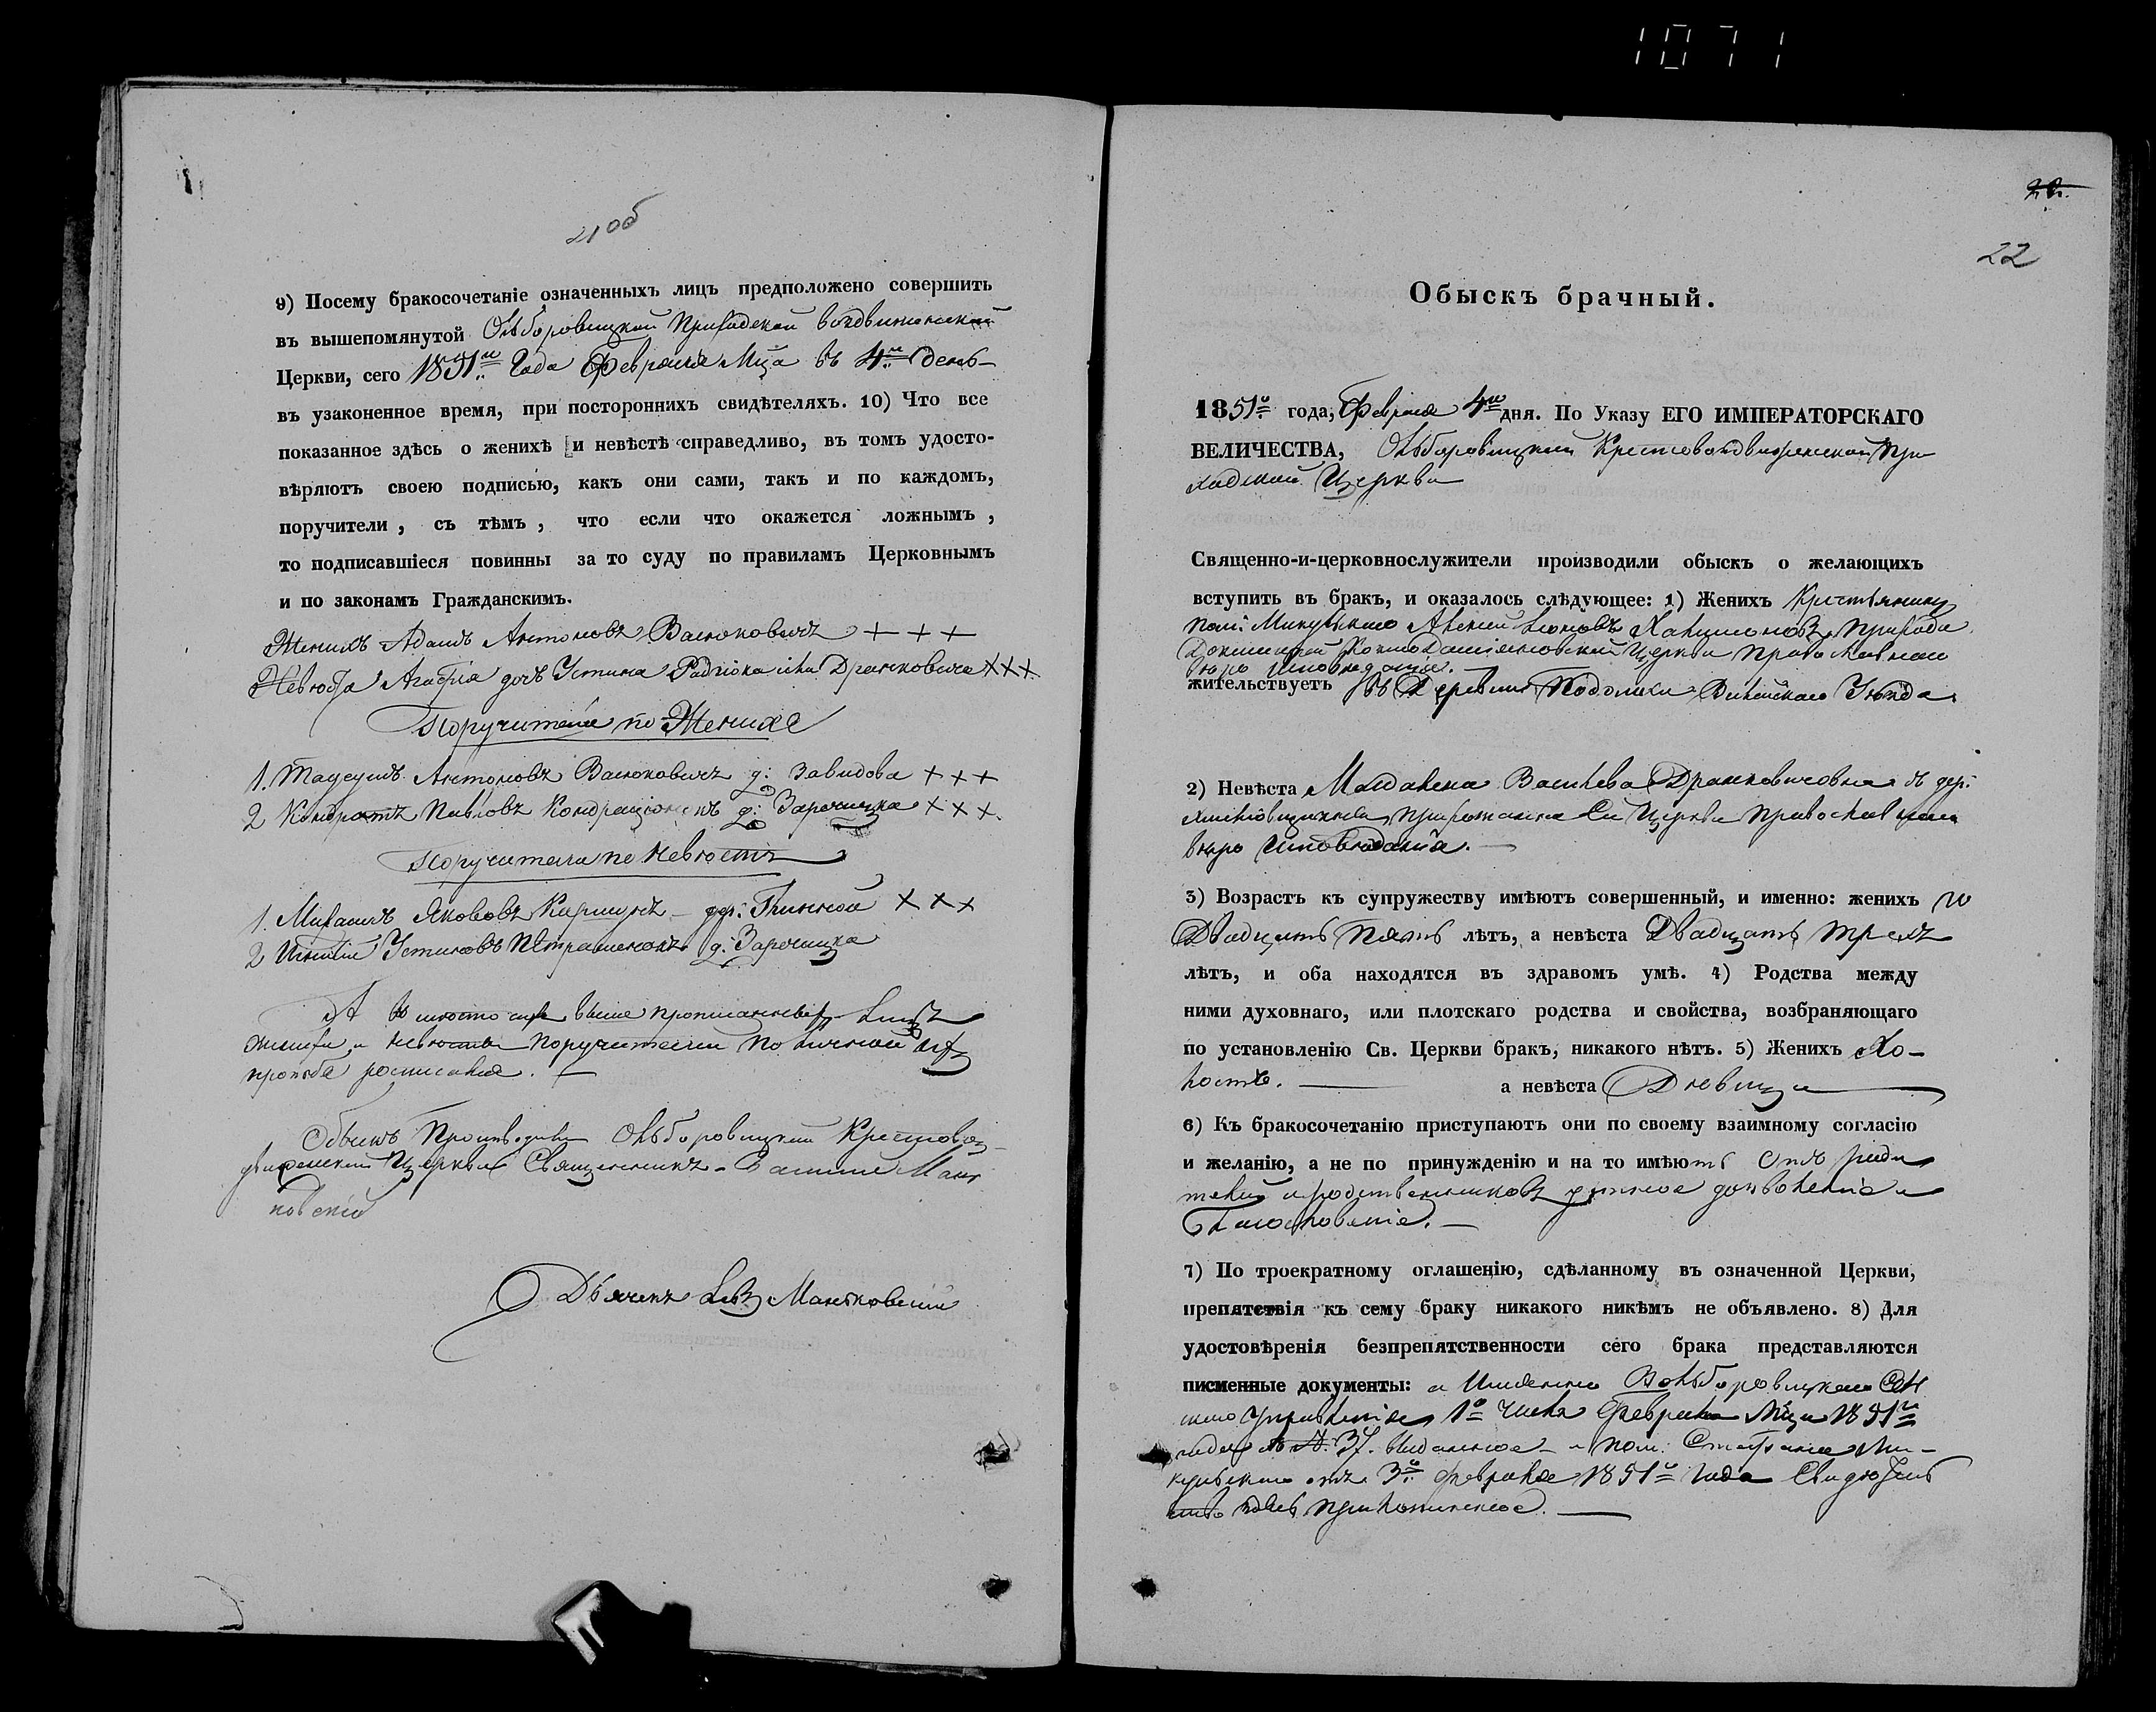 1071
21об
9) Посему бракосочетаніе означенныхъ лицъ предположено совершить
въ вышепомянутой Ольборовицкой Приходской
Церкви, сего 1851го Года Февраля Мца въ 4й день
въ узаконенное время, при постороннихъ свидѣтеляхъ. 10) Что все
показанное здѣсь о женихѣ и невѣстѣ справедливо, въ томъ удосто-
вѣряютъ своею подписью, какъ они сами, такъ и по каждомъ,
поручители, съ тѣмъ, что если что окажется ложнымъ,
то подписавшіеся повинны за то суду по правиламъ Церковнымъ
и по законамъ Гражданскимъ.
Женихъ Адамъ Антоновъ Васюковичъ + + +
Невѣста Агафія дочь Устина Дранковича + + +
Поручители по Женихѣ
1. Тадеушъ Антоновъ Васюковичъ д: Завидова + + +
2 Кондратъ Павловъ д: Заречицка × × ×
Поручители по Невѣстѣ
1. Михаилъ Якововъ дер: × × ×
2 Игнатій Устиновъ Петрашенокъ д: Заречицка
А вмѣсто ихъ выше прописанныхъ Лицъ
жениха и невѣсты поручителей по личной ихъ
прозьбѣ росписался.
Обыскъ Производилъ Ольборовицкой Крестовоз-
движенской Церкви Священникъ Василій Мань
ковскій
Дьячекъ Левъ Маньковскій
22.
22
Обыскъ брачный.
1851го года, Февраля 4го дня. По Указу ЕГО ИМПЕРАТОРСКАГО
ВЕЛИЧЕСТВА, Ольборовицкой Крестовоздвиженской При
ходской Церкви
Священно-и-церковнослужители производили обыскъ о желающихъ
вступить въ бракъ, и оказалось слѣдующее: 1) Женихъ Крестьянинъ
Пом: Микульскаго Прихода
Докшицкой Церкви Православнаго
вѣро исповѣданія.
жительствуетъ въ Деревни Подолики Вилейскаго Уѣзда.
2) Невѣста Магдалена Васильева Дранковичовна съ дер:
прихожанка сей Церкви Православнаго
вѣро исповѣданія.
3) Возрастъ къ супружеству имѣютъ совершенный, и именно: женихъ
Двадцать Пять лѣтъ, а невѣста Двадцать трехъ
лѣтъ, и оба находятся въ здравомъ умѣ. 4) Родства между
ними духовнаго, или плотскаго родства и свойства, возбраняющаго
по установленію Св. Церкви бракъ, никакого нѣтъ. 5) Женихъ Хо-
лостъ. а невѣста Дѣвица
6) Къ бракосочетанію приступаютъ они по своему взаимному согласію
и желанію, а не по принужденію и на то имѣютъ отъ роди
телей и родственниковъ дозволеніе и
Благословеніе.
7) По троекратному оглашенію, сдѣланному въ означенной Церкви,
препятствія къ сему браку никакого никѣмъ не объявлено. 8) Для
удостовѣренія безпрепятственности сего брака представляются
писменные документы: а Именно Вольборовицкаго Сель
скаго Управленія 1о Числа Февраля Мца 1851го
года за N. 37. Выданное и пом: Стефана Ми-
кульскаго отъ 3о Февраля 1851го Года Свидетель
ство